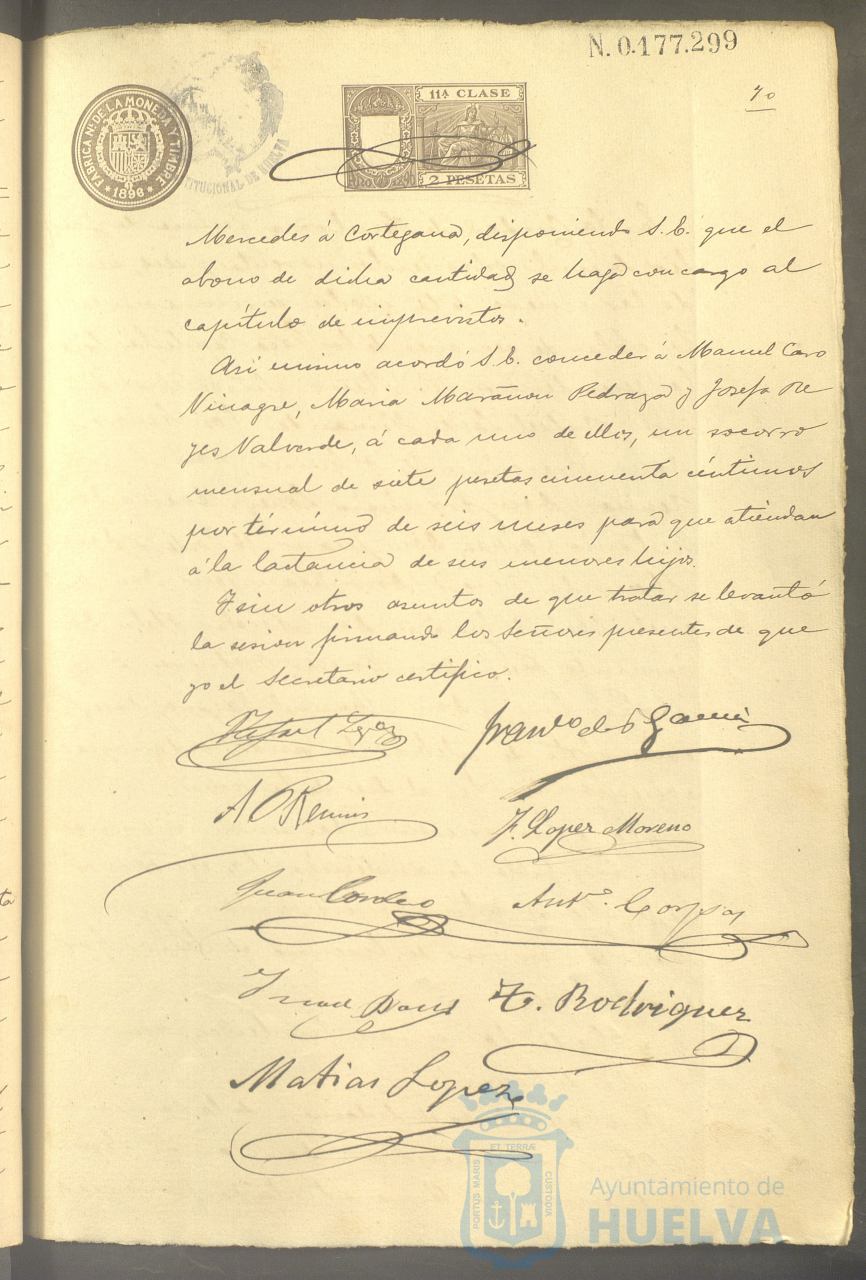 N. 0.177.299
70
FABRICA NL. DE LA MONEDA Y TIMBRE
* 1896 *
TITUCIONAL DE HUELVA
11ª CLASE
2 PESETAS
Mercedes á Cortegana, disponiendo S.E. que el
abono de dicha cantidad se haga con cargo al
capítulo de imprevistos.
Así mismo acordó S.E. conceder á Manuel Caro
Vinagre, Maria Marañon Pedraza y Josefa Re
yes Valverde, á cada uno de ellos, un socorro
mensual de siete pesetas cincuenta céntimos
por término de seis meses para que atiendan
á la lactancia de sus menores hijos.
Y sin otros asuntos de que tratar se levantó
la sesion firmando los Señores presentes de que
yo el Secretario certifico.
Rafael Lopez
Franco de P García
A O Remus
F. Lopez Moreno
Juan Cordero
Antº. Corpas
T. Rodriguez
Matias Lopez
PORTUS MARIS ET TERRÆ CUSTODIA
Ayuntamiento de
HUELVA